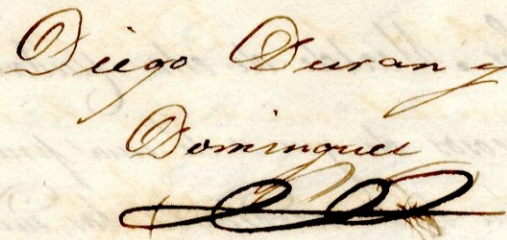 Diego Duran y
Dominguez